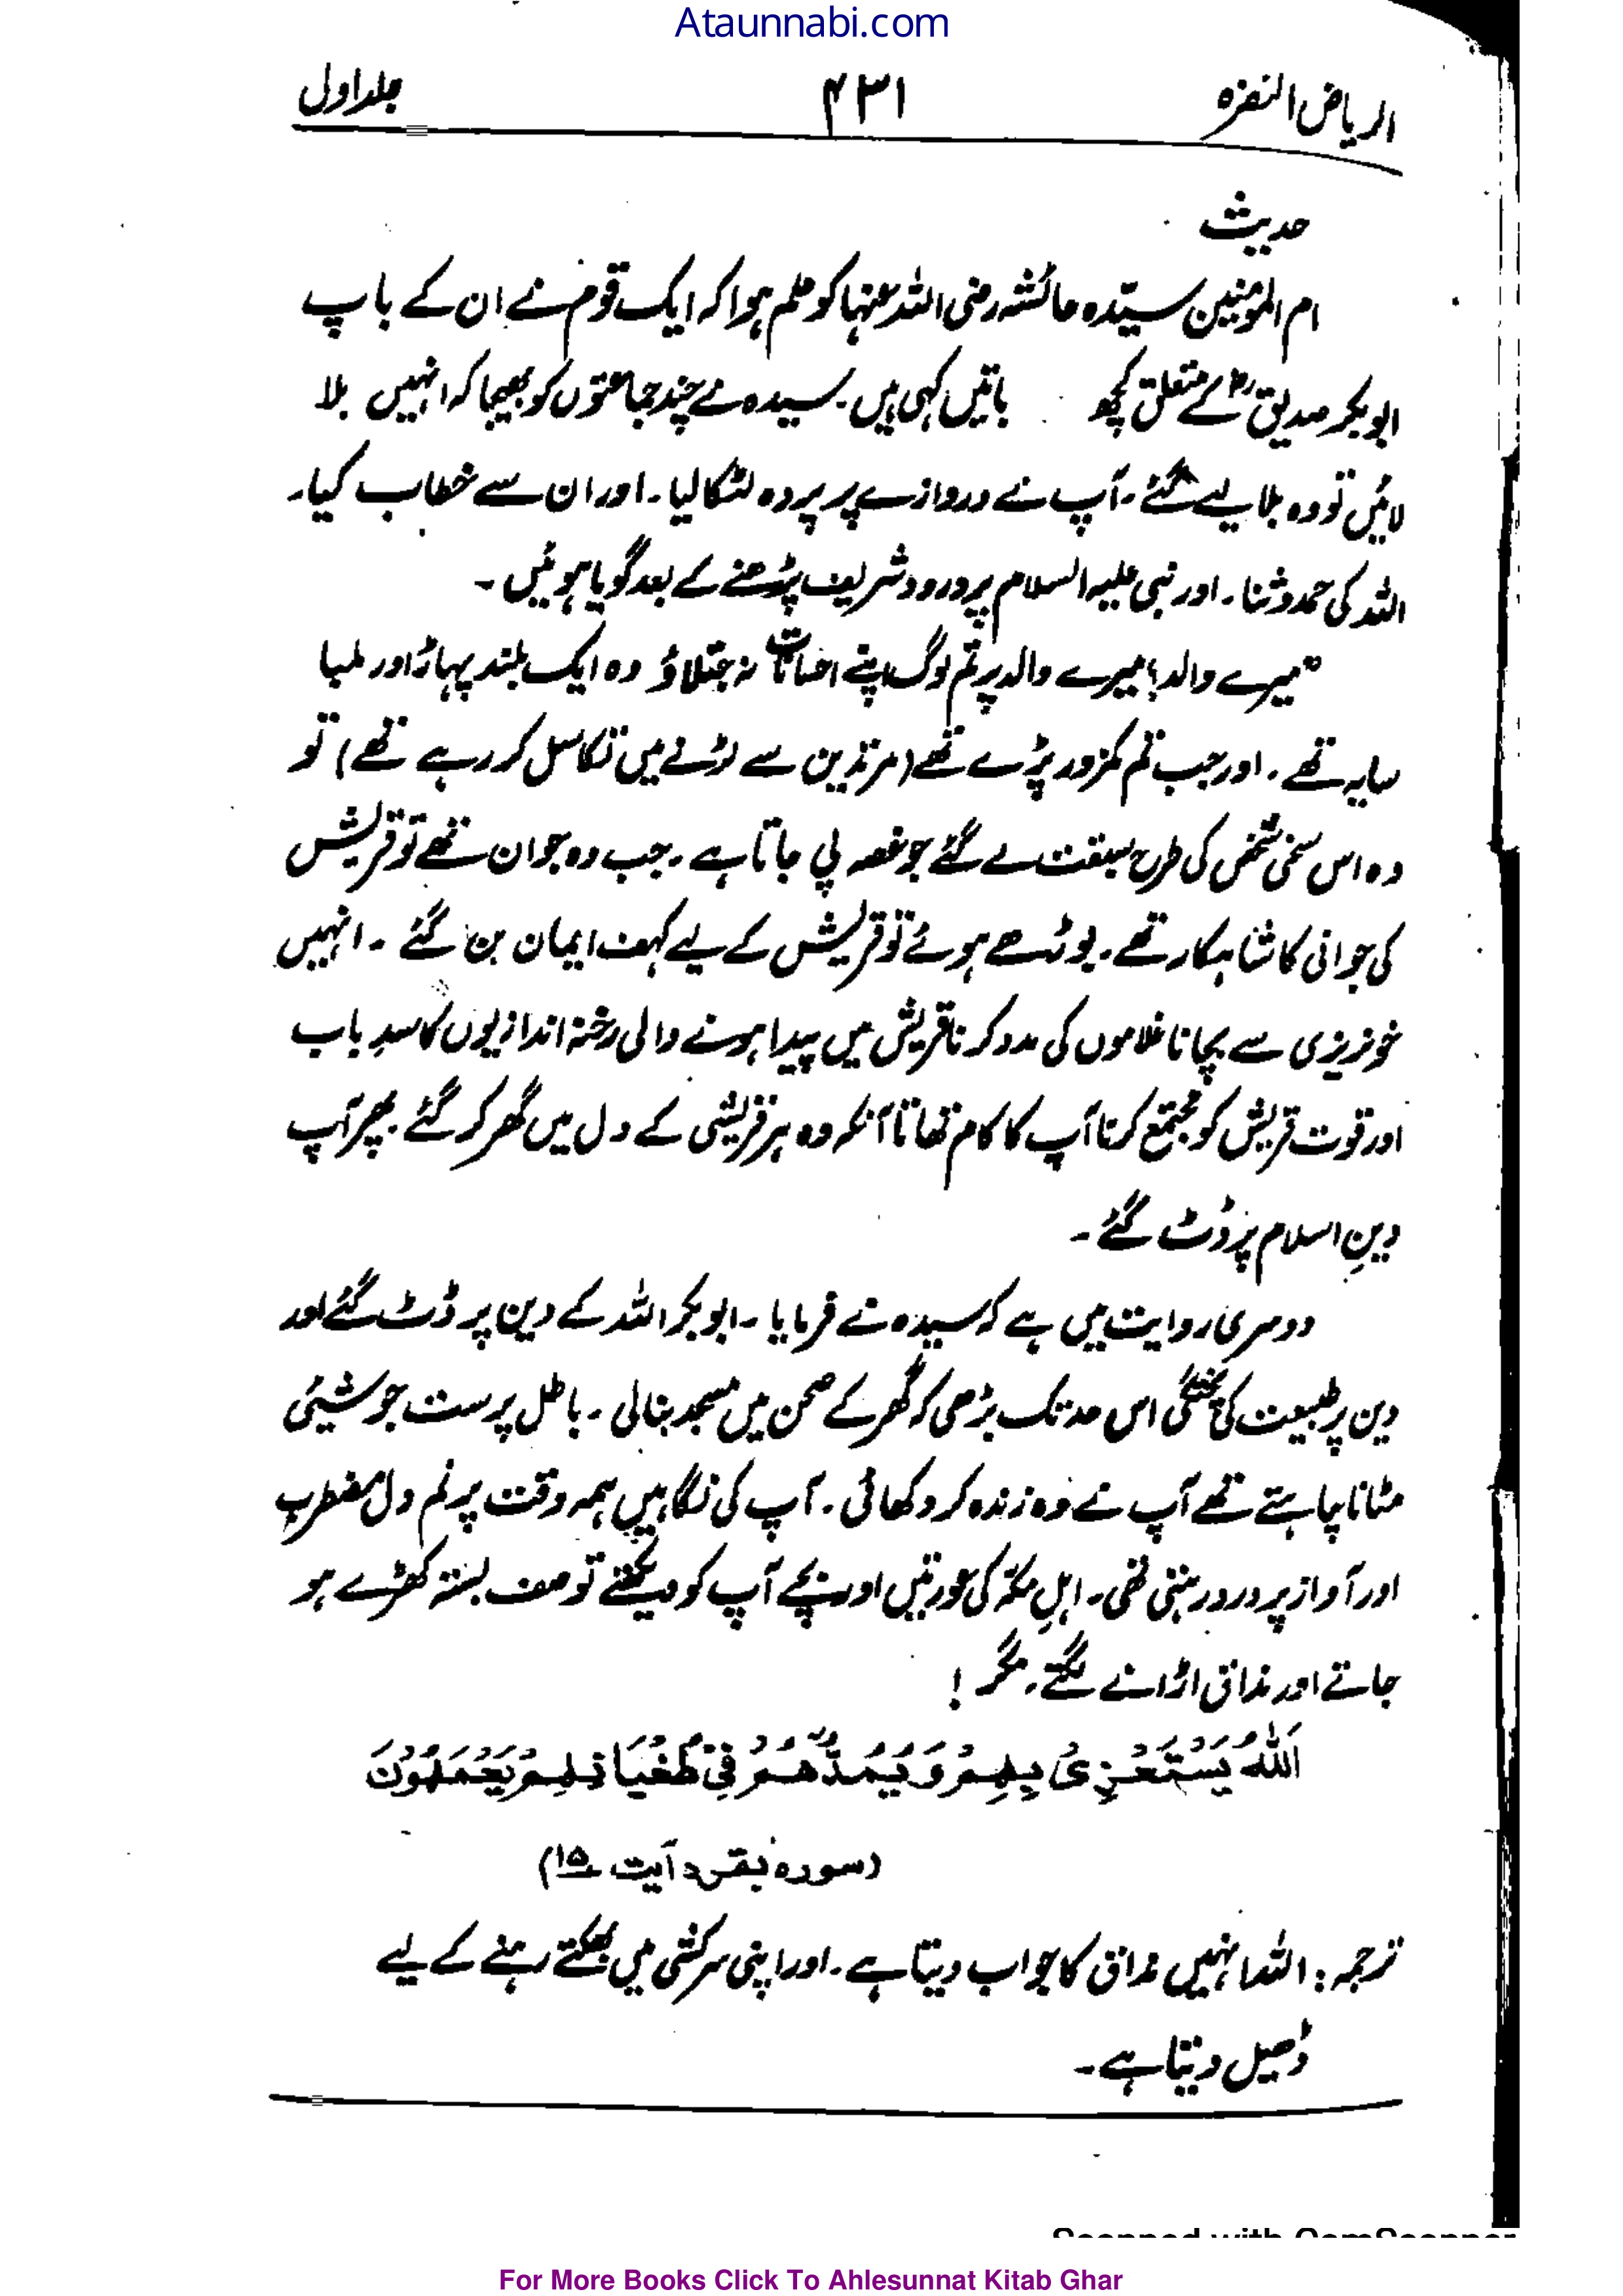 Ataunnabi.com
الریاض النضرہ ۴۳۱ جلد اول
حدیث
ام المؤمنین سیّدہ عائشہ رضی اللہ عنہا کو علم ہوا کہ ایک قوم نے ان کے باپ
ابو بکر صدیقؓ کے متعلق کچھ باتیں کہی ہیں۔ سیدہ نے چند جماعتوں کو بھیجا کہ انہیں بلا
لائیں تو وہ بلا لیے گئے۔ آپ نے دروازے پر پردہ لٹکا لیا۔ اور ان سے خطاب کیا۔
اللہ کی حمد و ثنا۔ اور نبی علیہ السلام پر درود شریف پڑھنے کے بعد گویا ہوئیں۔
"میرے والد؛ میرے والد پر تم لوگ اپنے احسانات نہ جتلاؤ وہ ایک بلند پہاڑ اور لمبا
سایہ تھے۔ اور جب تم کمزور پڑے تھے (مرتدین سے لڑنے میں تکاسل کر رہے تھے) تو
وہ اس سخی شخص کی طرح سبقت لے گئے جو غصہ پی جاتا ہے۔ جب وہ جوان تھے تو قریش
کی جوانی کا شاہکار تھے۔ بوڑھے ہوئے تو قریش کے لیے کہف ایمان بن گئے۔ انہیں
خونریزی سے بچانا غلاموں کی مدد کرنا قریش میں پیدا ہونے والی رخنہ اندازیوں کا سدِ باب
اور قوت قریش کو مجتمع کرنا آپ کا کام تھا تا آنکہ وہ ہر قریشی کے دل میں گھر کر گئے۔ پھر آپ
دینِ اسلام پر ڈٹ گئے۔
دوسری روایت میں ہے کہ سیدہ نے فرمایا۔ ابو بکر اللہ کے دین پر ڈٹ گئے اور
دین پر طبیعت کی پختگی اس حد تک بڑھی کہ گھر کے صحن میں مسجد بنالی۔ باطل پرست جو شیئی
مٹانا چاہتے تھے آپ نے وہ زندہ کر دکھائی۔ آپ کی نگاہیں ہمہ وقت پر نم دل مضطرب
اور آواز پر درد رہتی تھی۔ اہلِ مکہ کی عورتیں اور بچے آپ کو دیکھتے تو صف بستہ کھڑے ہو
جاتے اور مذاق اڑانے لگتے۔ مگر!
اَللّٰہُ یَسْتَھْزِئُ بِھِمْ وَیَمُدُّھُمْ فِیْ طُغْیَانِھِمْ یَعْمَھُوْنَ
(سورہ بقرہ آیت ۱۵)
ترجمہ: اللہ انہیں مذاق کا جواب دیتا ہے۔ اور اپنی سرکشی میں بھٹکتے رہنے کے لیے
ڈھیل دیتا ہے۔
For More Books Click To Ahlesunnat Kitab Ghar